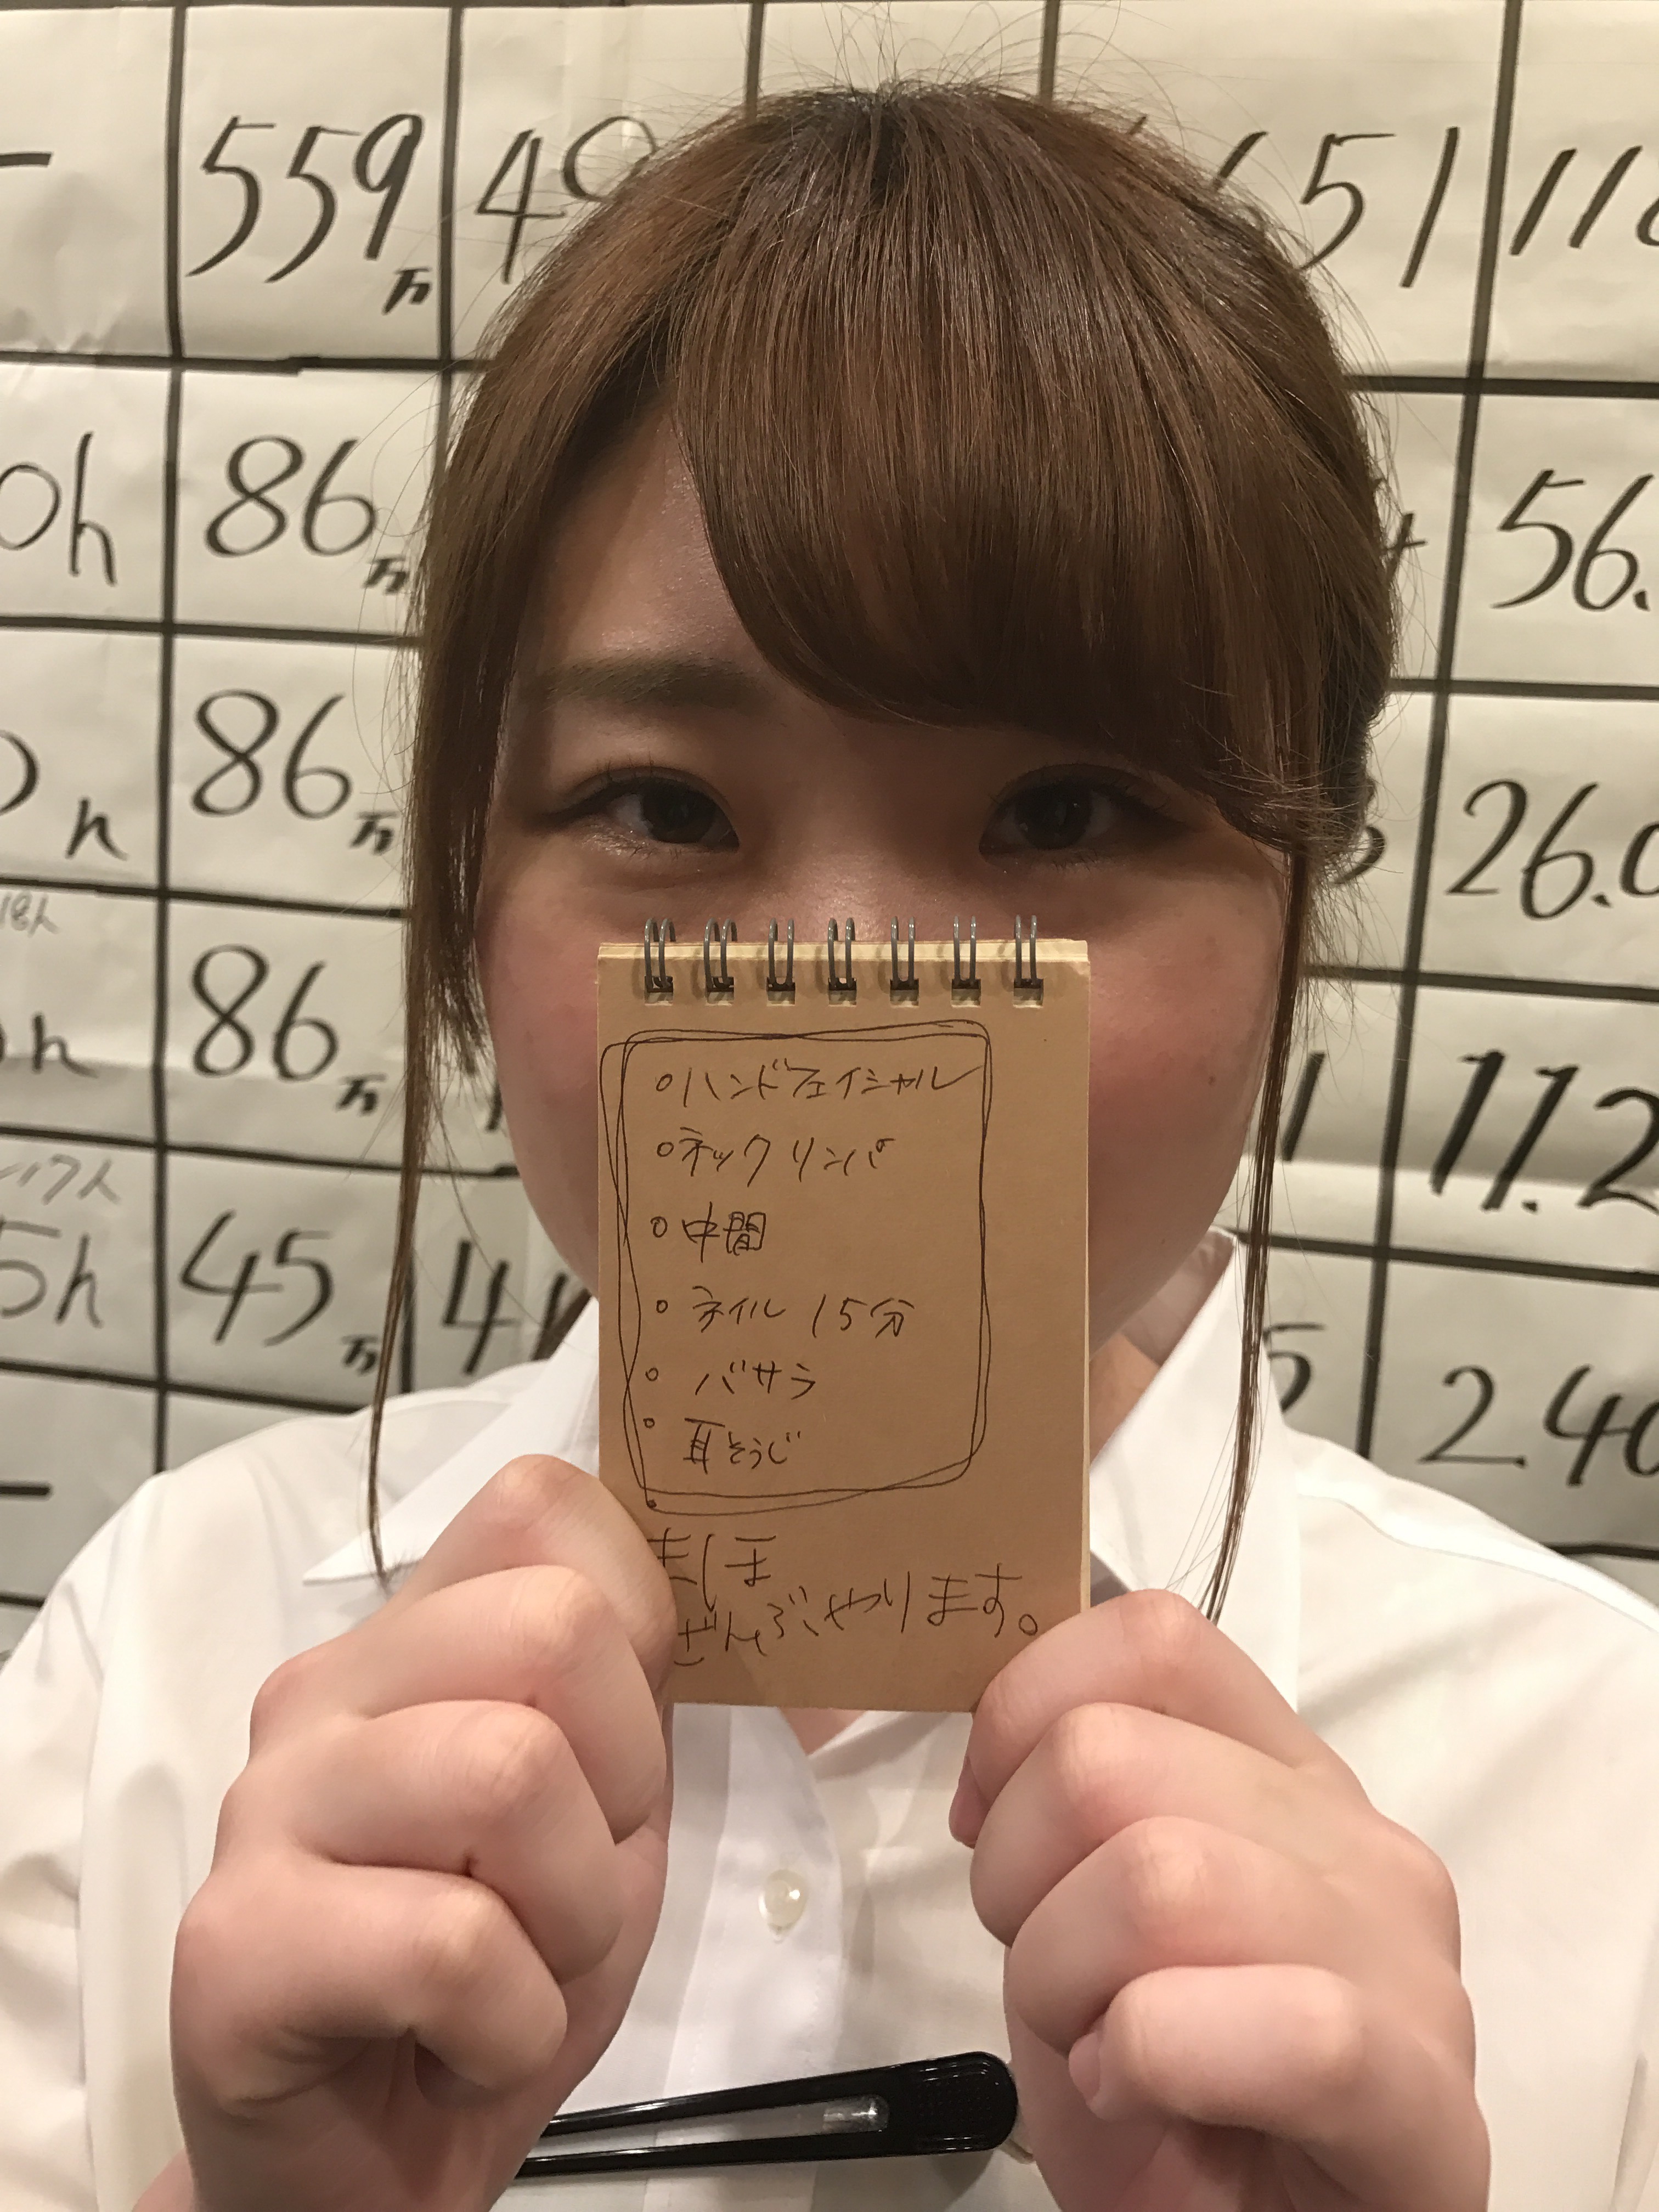 559万
651
86万
56.
86万
26.0
86万
11.2
45万
2.40
ハンドフェイシャル
ネックリンパ
中間
ネイル 15分
バサラ
耳そうじ
ましほ
ぜんぶやります。